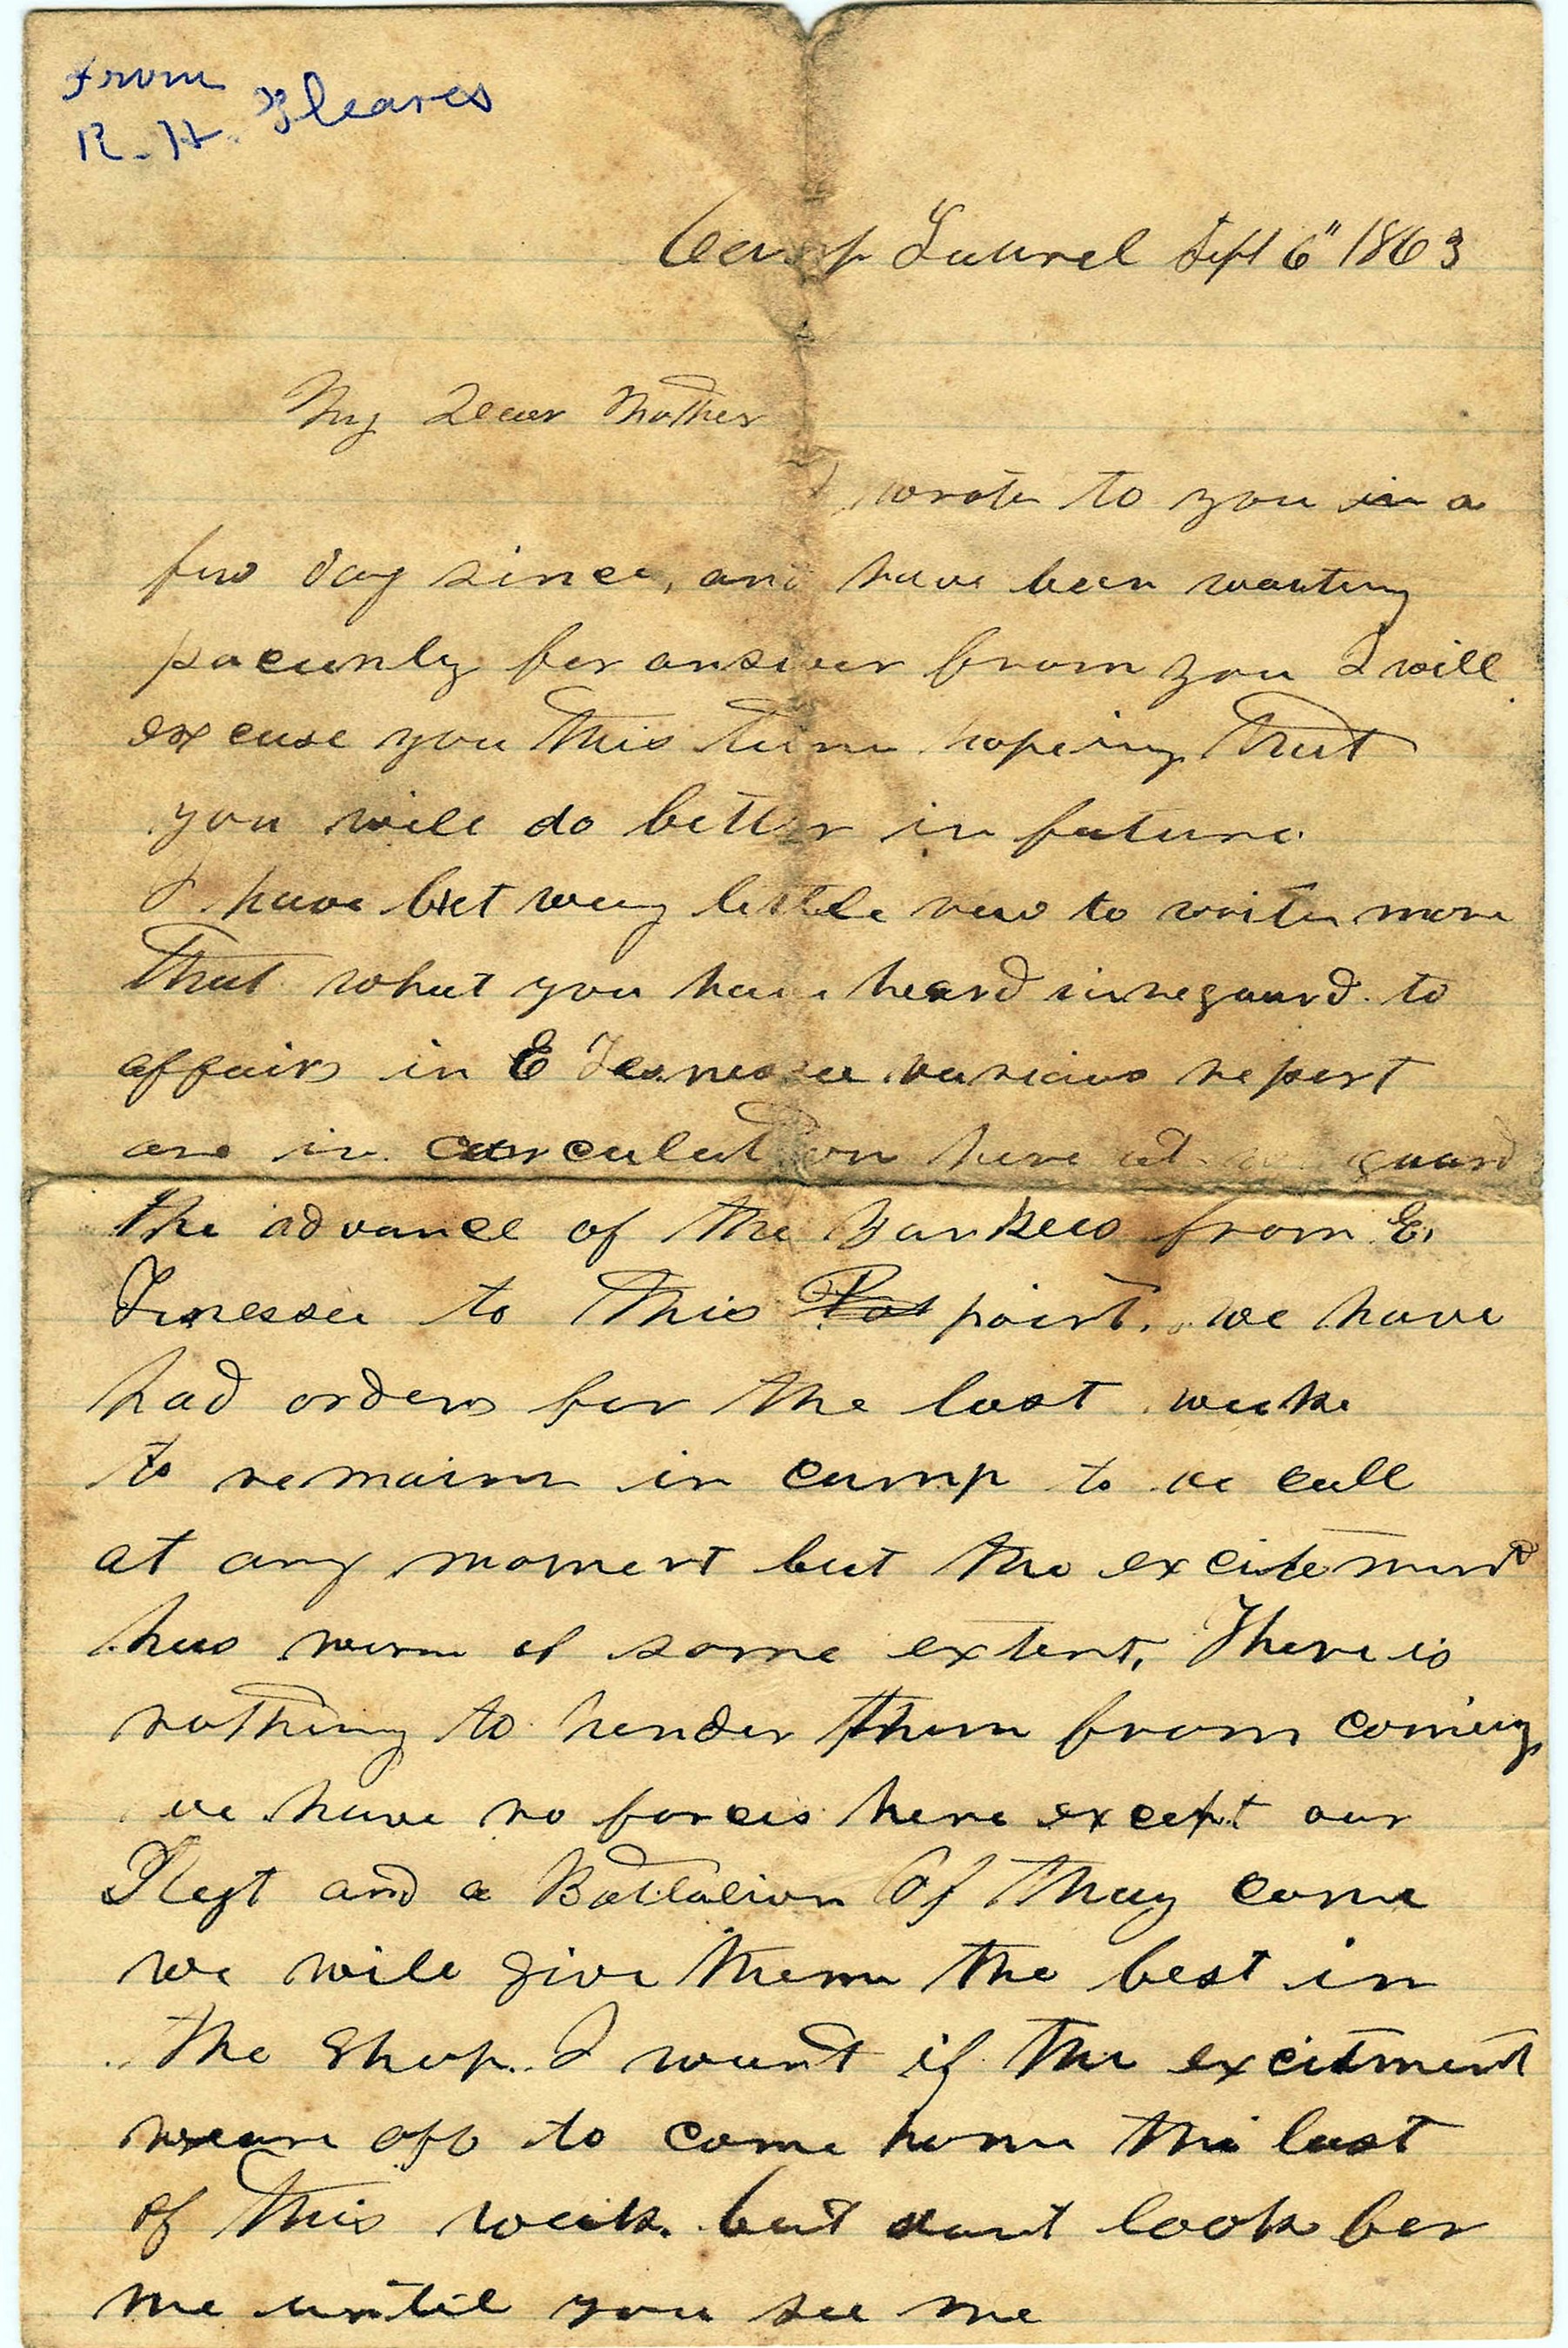 From
R. H. Gleaves
Camp Laurel Sept 6" 1863
My Dear Mother
I wrote to you in a
few day since, and have been wanting
pacunly for answer from you I will
excuse you this time hoping that
you will do better in future.
I have but very little new to write more
that what you have heard in regaurd to
affairs in E Tennessee various report
are in curculation here
the advance of the Yankees from E.
Tenessee to this Pot point. we have
had orders for the last weeke
to remainn in camp to be call
at any moment but the excitement
has worn of some extent, There is
nothing to hender them from coming,
we have no forces here except our
Regt and a Battalion If thay come
we will give them the best in
the Shop. I want if the excitment
weare off to come home the last
of this week. but dont look for
me until you see me